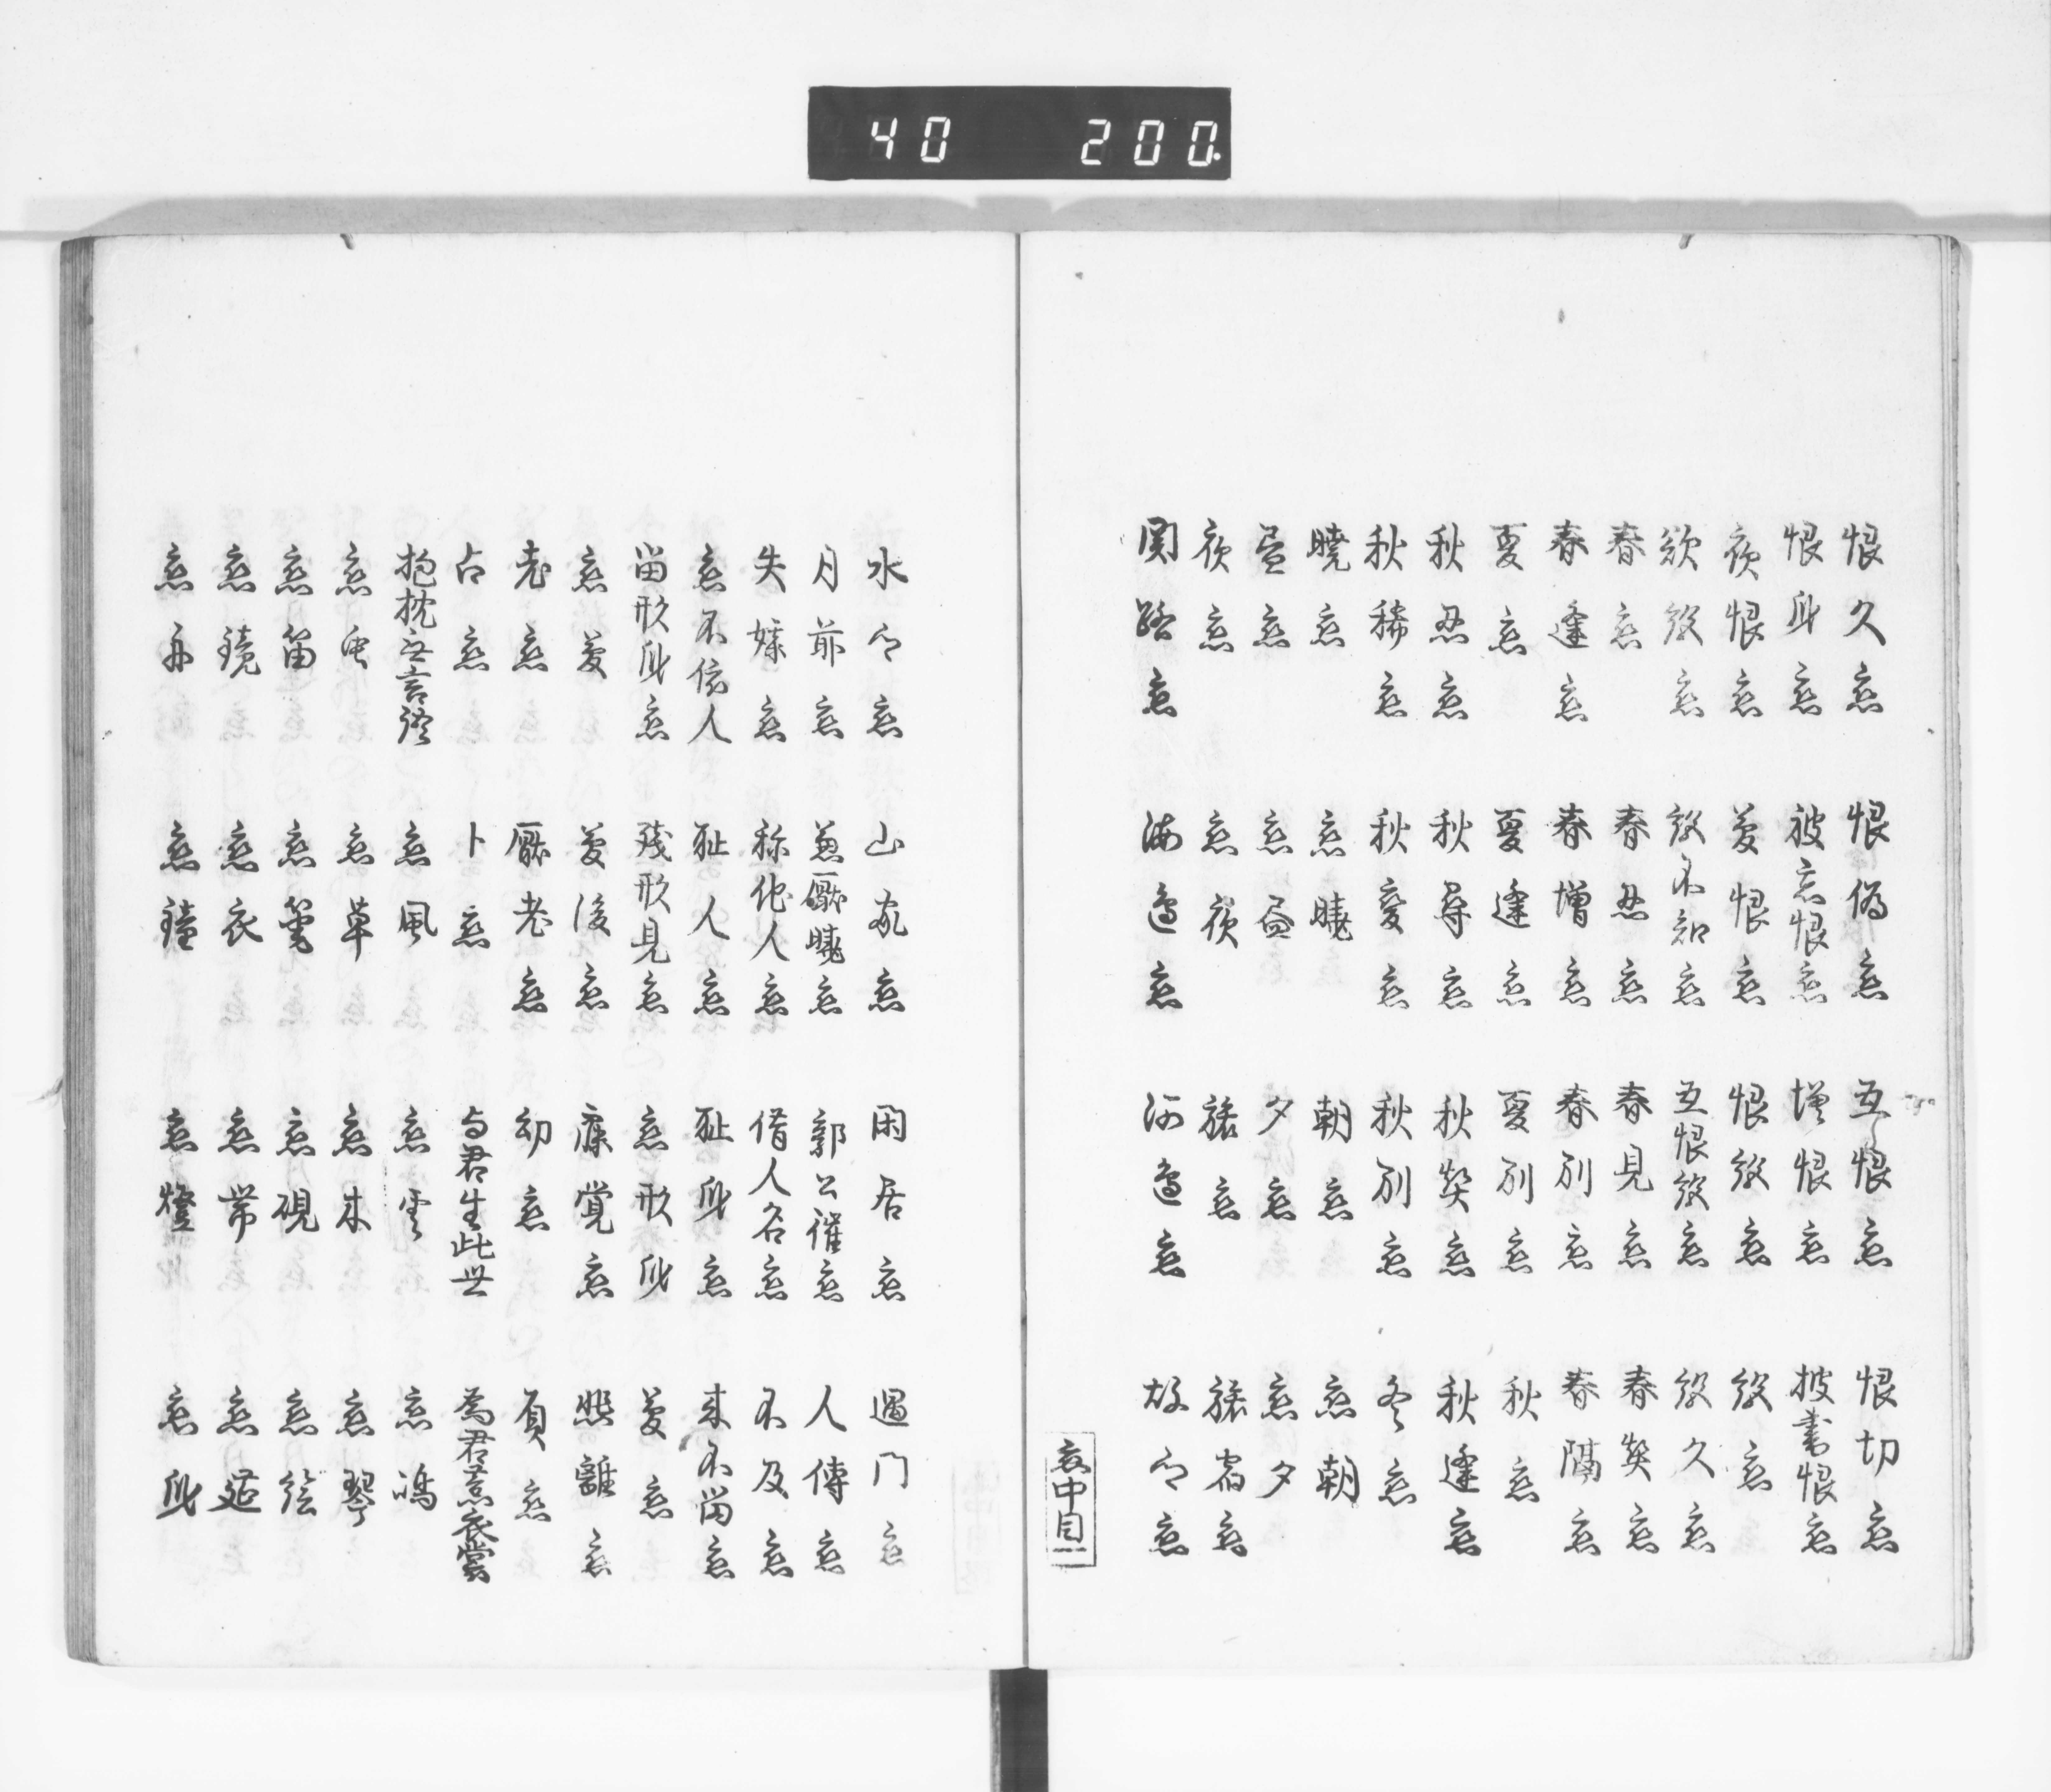 40 200.
恨久恋 恨偽恋 互恨恋 恨切恋
恨身恋 被忘恨恋 増恨恋 披書恨恋
夜恨恋 夢恨恋 恨絶恋 絶恋
欲絶恋 絶不知恋 互恨絶恋 絶久恋
春恋 春忍恋 春見恋 春契恋
春逢恋 春増恋 春別恋 春隔恋
夏恋 夏逢恋 夏別恋 秋恋
秋忍恋 秋尋恋 秋契恋 秋逢恋
秋稀恋 秋変恋 秋別恋 冬恋
暁恋 恋暁 朝恋 恋朝
昼恋 恋昼 夕恋 恋夕
夜恋 恋夜 旅恋 旅宿恋
関路恋 海邊恋 河邊恋 故郷恋
恋中目一
水郷恋 山家恋 閑居恋 過門恋
月前恋 兼厭暁恋 郭公催恋 人傳恋
失媒恋 称他人恋 借人名恋 不及恋
恋不依人 恥人恋 恥身恋 来不留恋
留形身恋 残形見恋 恋形身 夢恋
恋夢 夢後恋 寐覚恋 難離恋
老恋 厭老恋 幼恋 負恋
占恋 卜恋 与君生此世 為君薫衣裳
抱枕無言語 恋風 恋雲 恋嶋
恋虫 恋草 恋木 恋琴
恋笛 恋筆 恋硯 恋絵
恋鏡 恋衣 恋帯 恋莚
恋舟 恋鐘 恋燈 恋身